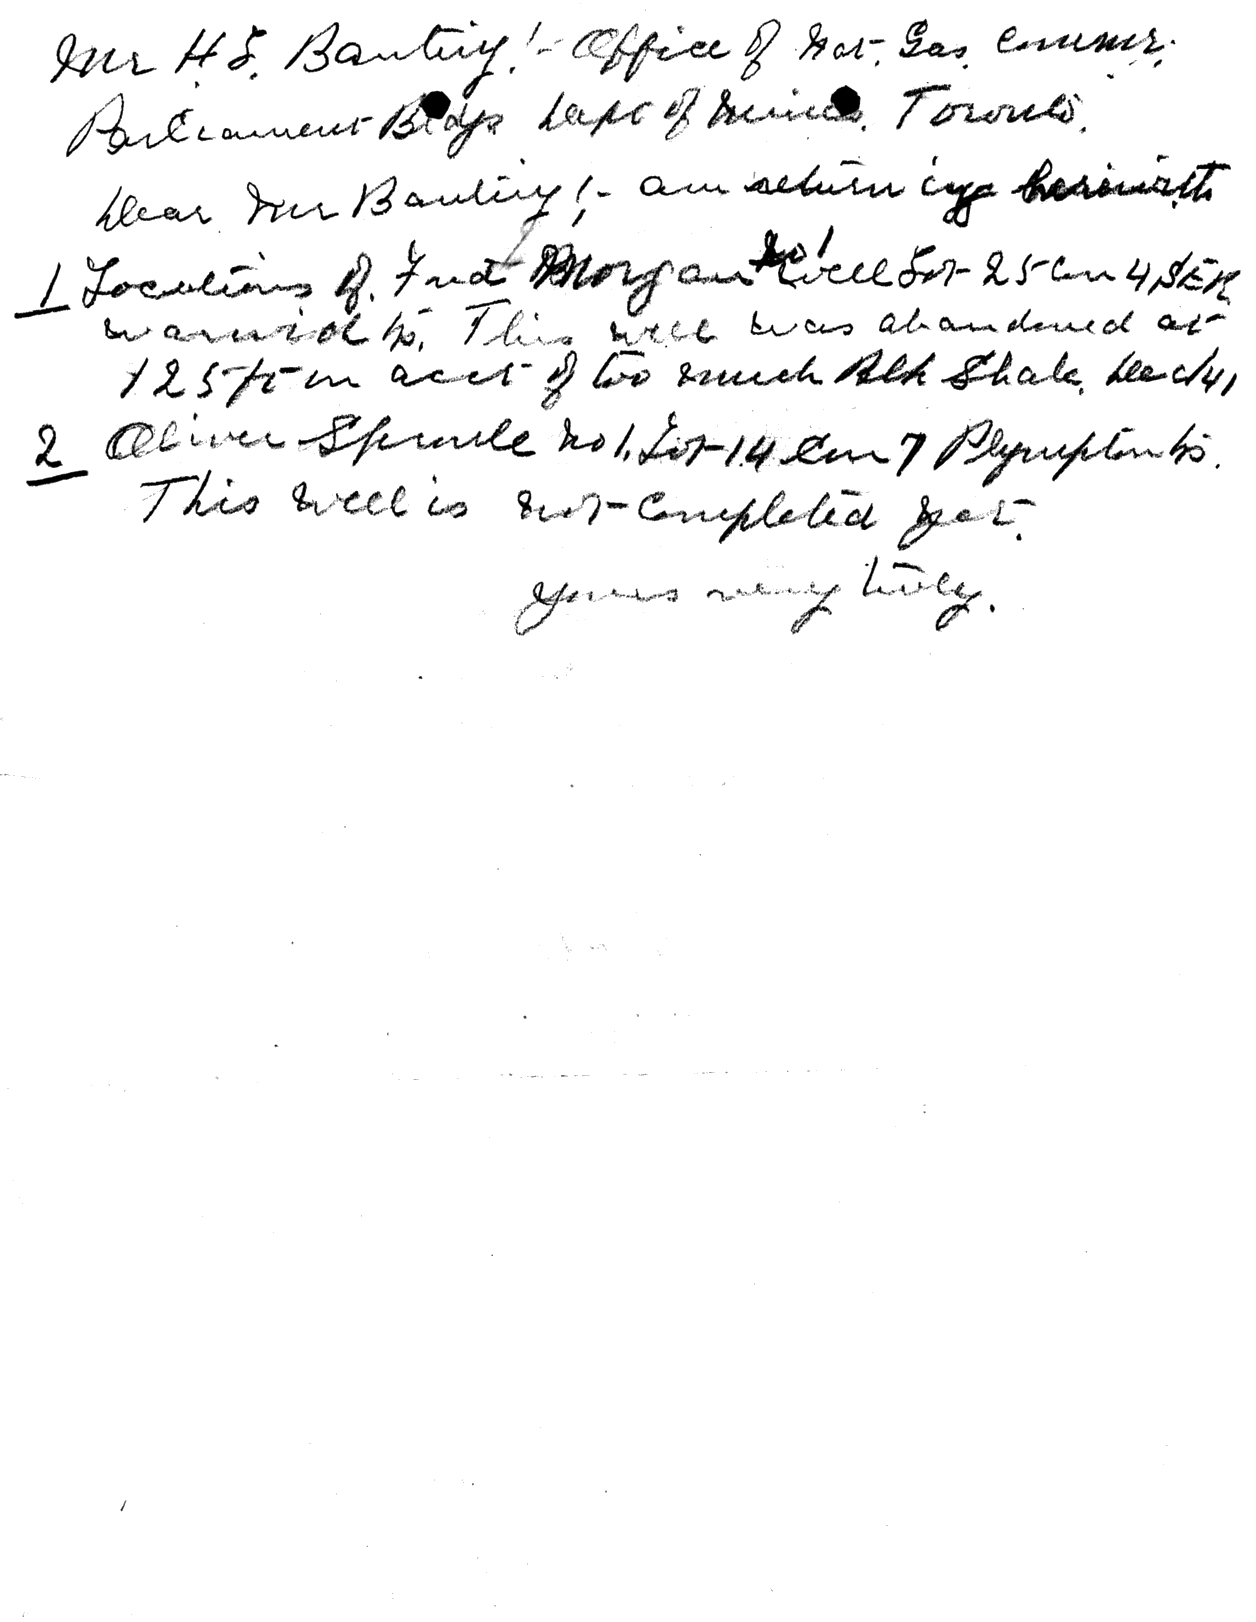 Mr H S. Banting!- Office of Nat. Gas. Commr.
Parliament Bldgs Dept of Mines. Toronto.
Dear Mr Banting!- am returning herewith
1 Locations of. Fred Morgan No 1 Well Lot 25 Con 4 SER
Warwick Tp. This well was abandoned at
125 ft on acct of too much Blk Shale. Dec 1/41
2 Oliver Sproule No 1. Lot 14 Con 7 Plympton Tp.
This well is not completed yet.
Yours very truly.